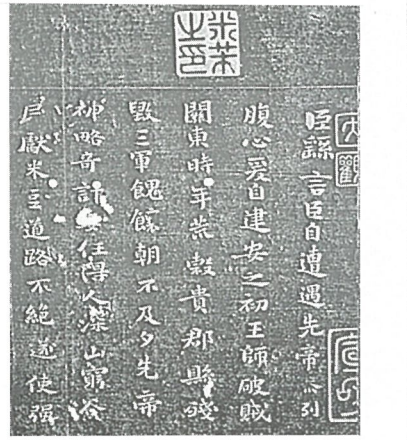 大觀
臣繇言臣自遭遇先帝忝列
腹心爰自建安之初王師破賊
關東時年荒穀貴郡縣殘
毀三軍餽饟朝不及夕先帝
神略奇計委任得人深山窮谷
民獻米豆道路不絕遂使强
米芾
之印